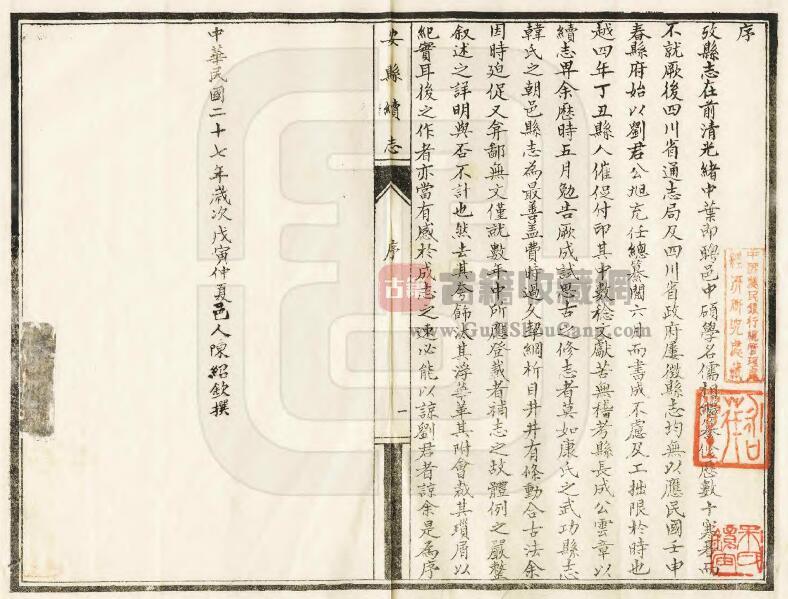 序
攷縣志在前清光緒中葉即聘邑中碩學名儒相繼纂修歷數十寒暑而
不就厥後四川省通志局及四川省政府屢徵縣志均無以應民國壬申
春縣府始以劉君公旭充任總纂閱六月而書成不慮及工拙限於時也
越四年丁丑縣人催促付印其中數稔文獻苦無稽考縣長成公雲章以
續志畀余歷時五月勉告厥成試思古之修志者莫如康氏之武功縣志
韓氏之朝邑縣志為最善盖費時過久挈綱析目井井有條動合古法余
因時迫促又弇鄙無文僅就數年中所應登載者補志之故體例之嚴整
叙述之詳明與否不計也然去其夸飾汰其浮華革其附會裁其瑣屑以
紀實耳後之作者亦當有感於成志之速必能以諒劉君者諒余是為序
安縣續志
序
一
中華民國二十七年歲次戊寅仲夏邑人陳紹欽撰
古籍收藏網
www.GuJiShouCang.com